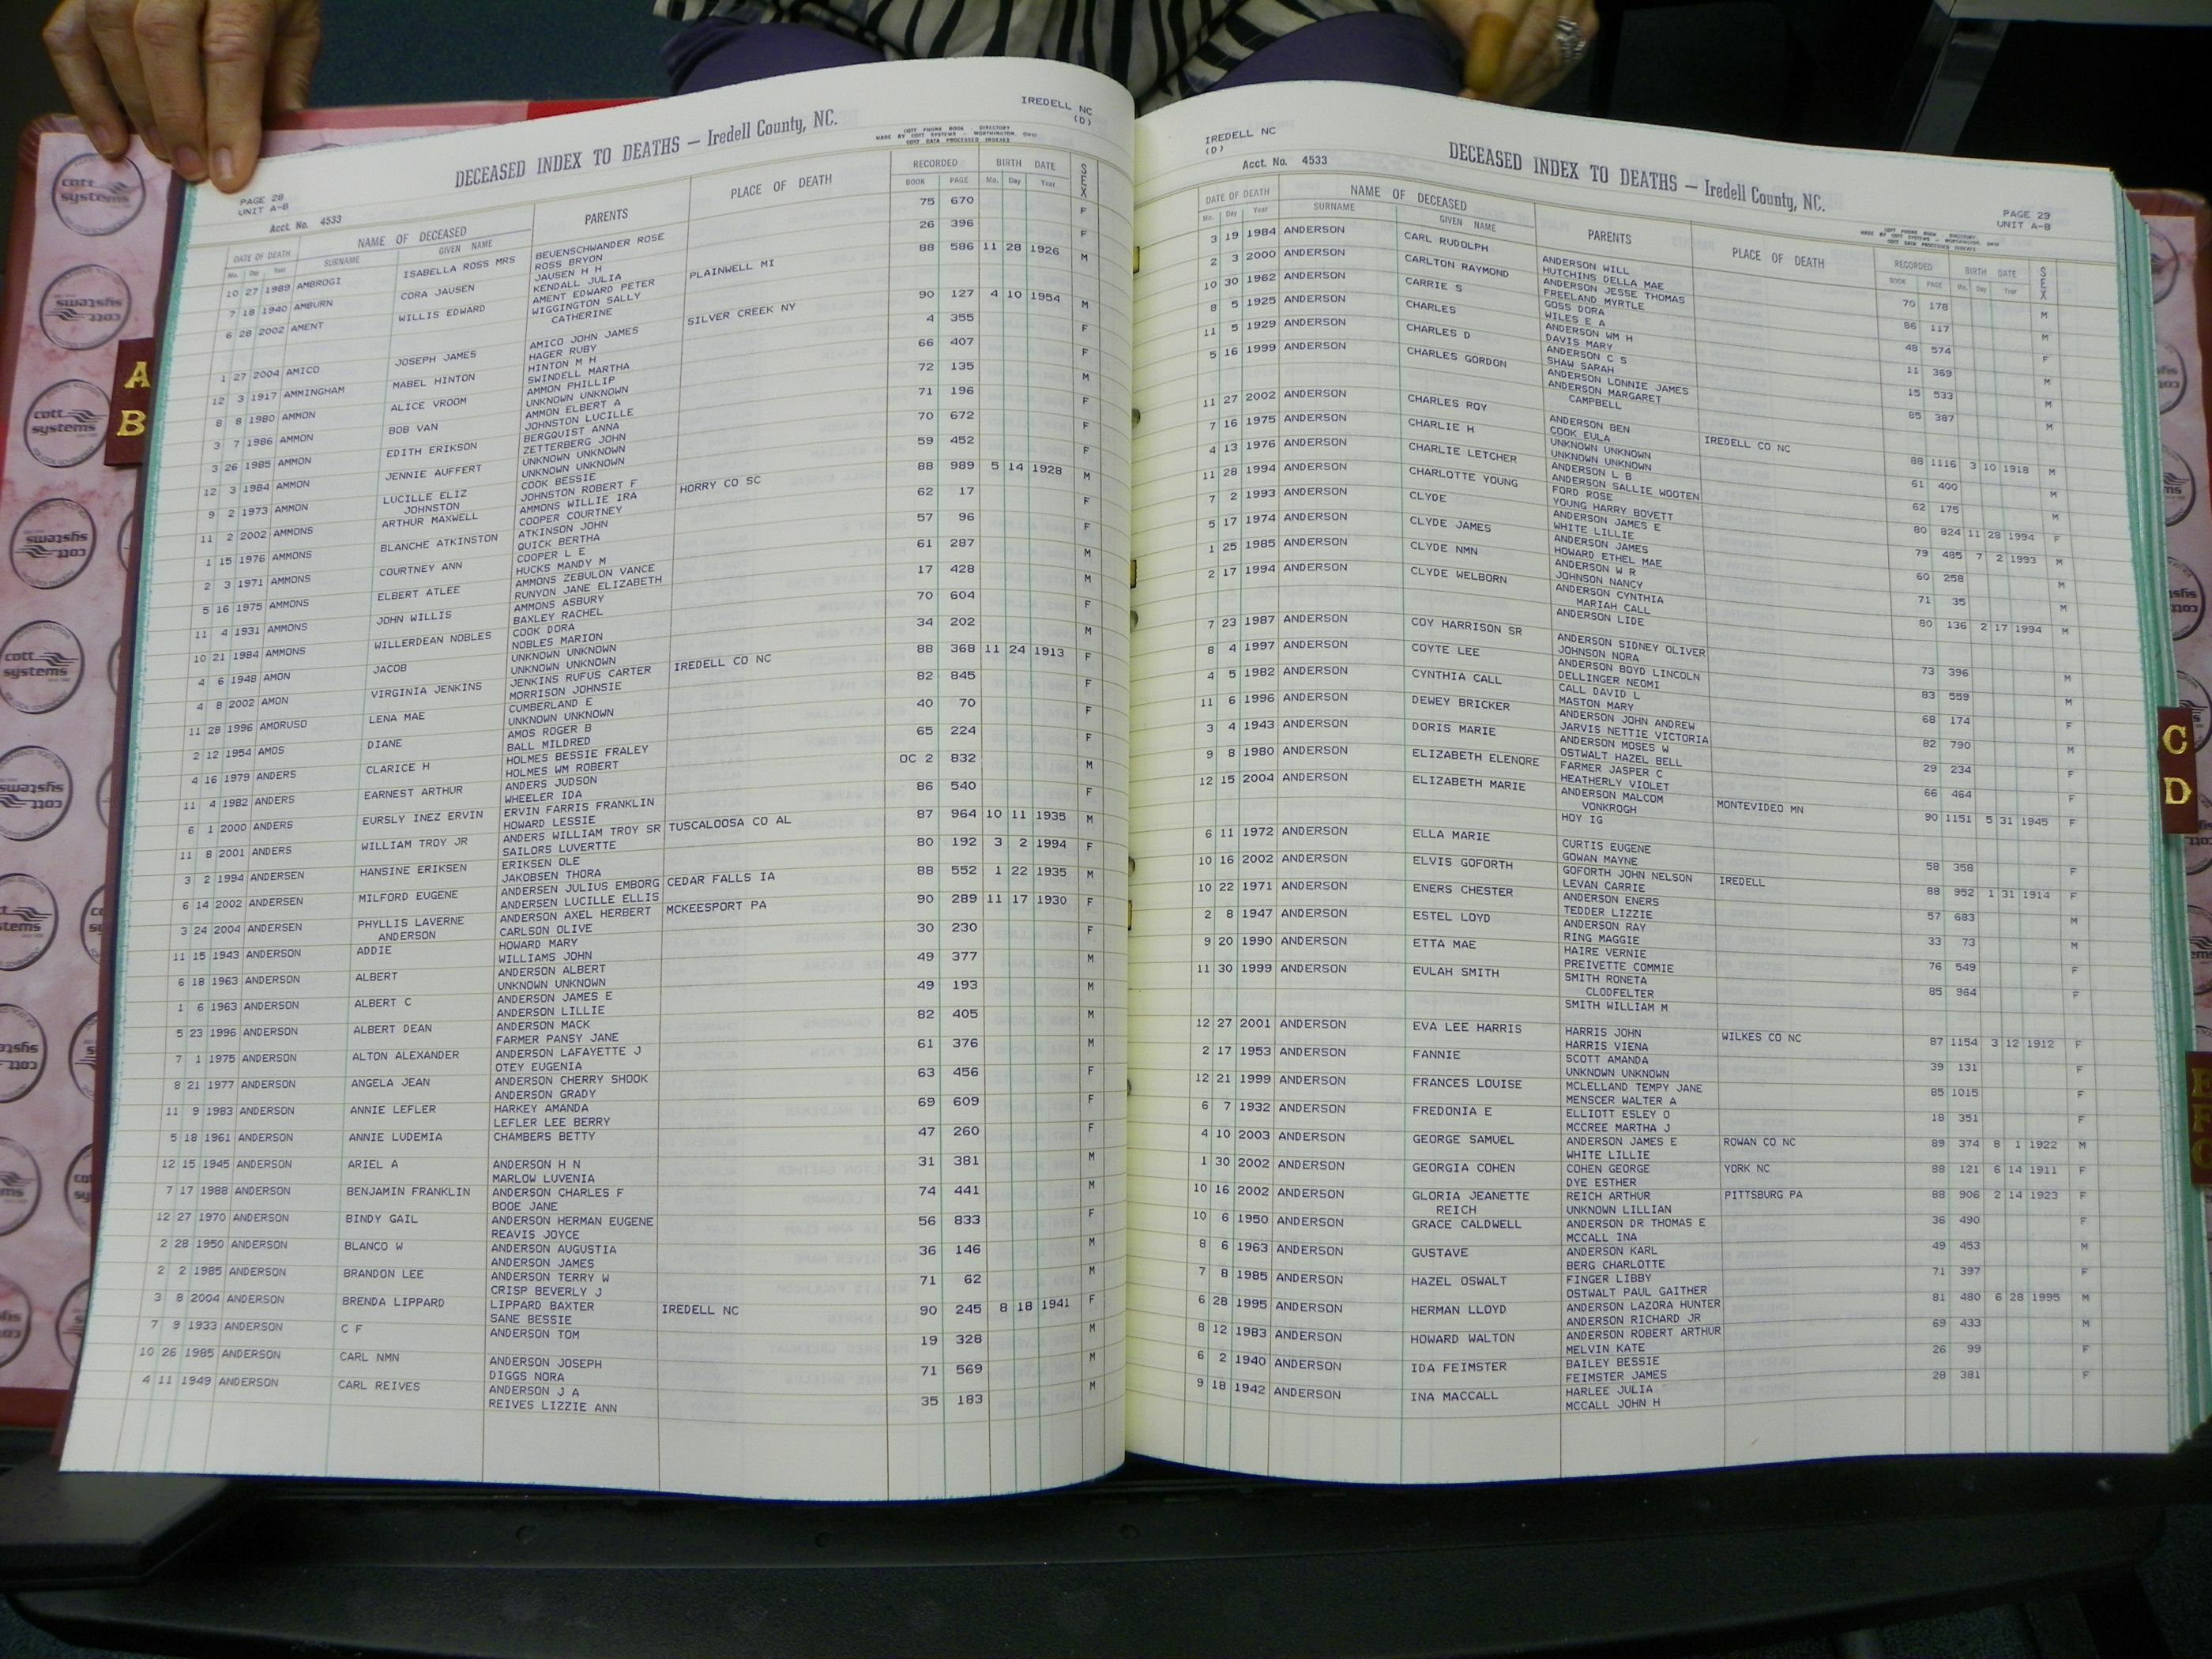 IREDELL NC
(D)
DECEASED INDEX TO DEATHS — Iredell County, NC.
COTT PHONE BOOK - DIRECTORY
MADE BY COTT SYSTEMS - WORTHINGTON, OHIO
COTT DATA PROCESSED INDEXES
PAGE 28
UNIT A-B
Acct. No. 4533
DATE OF DEATH NAME OF DECEASED PARENTS PLACE OF DEATH RECORDED BIRTH DATE SEX
Mo. Day Year SURNAME GIVEN NAME BOOK PAGE Mo. Day Year
10 27 1989 AMBROGI ISABELLA ROSS MRS BEUENSCHWANDER ROSE 75 670 F
ROSS BRYON
7 18 1940 AMBURN CORA JAUSEN JAUSEN H H 26 396 F
KENDALL JULIA
6 28 2002 AMENT WILLIS EDWARD AMENT EDWARD PETER PLAINWELL MI 88 586 11 28 1926 M
WIGGINGTON SALLY
CATHERINE
1 27 2004 AMICO JOSEPH JAMES AMICO JOHN JAMES SILVER CREEK NY 90 127 4 10 1954 M
HAGER RUBY
12 3 1917 AMMINGHAM MABEL HINTON HINTON M H 4 355 F
SWINDELL MARTHA
8 8 1980 AMMON ALICE VROOM AMMON PHILLIP 66 407 F
UNKNOWN UNKNOWN
3 7 1986 AMMON BOB VAN AMMON ELBERT A 72 135 M
JOHNSTON LUCILLE
3 26 1985 AMMON EDITH ERIKSON BERGQUIST ANNA 71 196 F
ZETTERBERG JOHN
12 3 1984 AMMON JENNIE AUFFERT UNKNOWN UNKNOWN 70 672 F
UNKNOWN UNKNOWN
9 2 1973 AMMON LUCILLE ELIZ COOK BESSIE 59 452 F
JOHNSTON JOHNSTON ROBERT F
11 2 2002 AMMONS ARTHUR MAXWELL AMMONS WILLIE IRA HORRY CO SC 88 989 5 14 1928 M
COOPER COURTNEY
1 15 1976 AMMONS BLANCHE ATKINSTON ATKINSON JOHN 62 17 F
QUICK BERTHA
2 3 1971 AMMONS COURTNEY ANN COOPER L E 57 96 F
HUCKS MANDY M
5 16 1975 AMMONS ELBERT ATLEE AMMONS ZEBULON VANCE 61 287 M
RUNYON JANE ELIZABETH
11 4 1931 AMMONS JOHN WILLIS AMMONS ASBURY 17 428 M
BAXLEY RACHEL
10 21 1984 AMMONS WILLERDEAN NOBLES COOK DORA 70 604 F
NOBLES MARION
4 6 1948 AMON JACOB UNKNOWN UNKNOWN 34 202 M
UNKNOWN UNKNOWN
4 8 2002 AMON VIRGINIA JENKINS JENKINS RUFUS CARTER IREDELL CO NC 88 368 11 24 1913 F
MORRISON JOHNSIE
11 28 1996 AMORUSO LENA MAE CUMBERLAND E 82 845 F
UNKNOWN UNKNOWN
2 12 1954 AMOS DIANE AMOS ROGER B 40 70
BALL MILDRED
4 16 1979 ANDERS CLARICE H HOLMES BESSIE FRALEY 65 224 F
HOLMES WM ROBERT
11 4 1982 ANDERS EARNEST ARTHUR ANDERS JUDSON OC 2 832 M
WHEELER IDA
6 1 2000 ANDERS EURSLY INEZ ERVIN ERVIN FARRIS FRANKLIN 86 540 F
HOWARD LESSIE
11 8 2001 ANDERS WILLIAM TROY JR ANDERS WILLIAM TROY SR TUSCALOOSA CO AL 87 964 10 11 1935 M
SAILORS LUVERTTE
3 2 1994 ANDERSEN HANSINE ERIKSEN ERIKSEN OLE 80 192 3 2 1994 F
JAKOBSEN THORA
6 14 2002 ANDERSEN MILFORD EUGENE ANDERSEN JULIUS EMBORG CEDAR FALLS IA 88 552 1 22 1935 M
ANDERSEN LUCILLE ELLIS
3 24 2004 ANDERSEN PHYLLIS LAVERNE ANDERSON AXEL HERBERT MCKEESPORT PA 90 289 11 17 1930 F
ANDERSON CARLSON OLIVE
11 15 1943 ANDERSON ADDIE HOWARD MARY 30 230 F
WILLIAMS JOHN
6 18 1963 ANDERSON ALBERT ANDERSON ALBERT 49 377 M
UNKNOWN UNKNOWN
1 6 1963 ANDERSON ALBERT C ANDERSON JAMES E 49 193 M
ANDERSON LILLIE
5 23 1996 ANDERSON ALBERT DEAN ANDERSON MACK 82 405 M
FARMER PANSY JANE
7 1 1975 ANDERSON ALTON ALEXANDER ANDERSON LAFAYETTE J 61 376 M
OTEY EUGENIA
8 21 1977 ANDERSON ANGELA JEAN ANDERSON CHERRY SHOOK 63 456 F
ANDERSON GRADY
11 9 1983 ANDERSON ANNIE LEFLER HARKEY AMANDA 69 609 F
LEFLER LEE BERRY
5 18 1961 ANDERSON ANNIE LUDEMIA CHAMBERS BETTY 47 260 F
12 15 1945 ANDERSON ARIEL A ANDERSON H N 31 381 M
MARLOW LUVENIA
7 17 1988 ANDERSON BENJAMIN FRANKLIN ANDERSON CHARLES F 74 441 M
BOOE JANE
12 27 1970 ANDERSON BINDY GAIL ANDERSON HERMAN EUGENE 56 833 F
REAVIS JOYCE
2 28 1950 ANDERSON BLANCO W ANDERSON AUGUSTIA 36 146 M
ANDERSON JAMES
2 2 1985 ANDERSON BRANDON LEE ANDERSON TERRY W 71 62 M
CRISP BEVERLY J
3 8 2004 ANDERSON BRENDA LIPPARD LIPPARD BAXTER IREDELL NC 90 245 8 18 1941 F
SANE BESSIE
7 9 1933 ANDERSON C F ANDERSON TOM 19 328 M
10 26 1985 ANDERSON CARL NMN ANDERSON JOSEPH 71 569 M
DIGGS NORA
4 11 1949 ANDERSON CARL REIVES ANDERSON J A 35 183 M
REIVES LIZZIE ANN
IREDELL NC
(D)
Acct. No. 4533
DECEASED INDEX TO DEATHS — Iredell County, NC.
PAGE 29
UNIT A-B
MADE BY COTT SYSTEMS - WORTHINGTON, OHIO
DATE OF DEATH NAME OF DECEASED PARENTS PLACE OF DEATH RECORDED BIRTH DATE SEX
Mo. Day Year SURNAME GIVEN NAME BOOK PAGE Mo. Day Year
3 19 1984 ANDERSON CARL RUDOLPH ANDERSON WILL 70 178 M
HUTCHINS DELLA MAE
2 3 2000 ANDERSON CARLTON RAYMOND ANDERSON JESSE THOMAS 86 117 M
FREELAND MYRTLE
10 30 1962 ANDERSON CARRIE S GOSS DORA 48 574 F
WILES E A
8 5 1925 ANDERSON CHARLES ANDERSON WM H 11 369 M
DAVIS MARY
11 5 1929 ANDERSON CHARLES D ANDERSON C S 15 533 M
SHAW SARAH
5 16 1999 ANDERSON CHARLES GORDON ANDERSON LONNIE JAMES 85 387 M
ANDERSON MARGARET
CAMPBELL
11 27 2002 ANDERSON CHARLES ROY ANDERSON BEN IREDELL CO NC 88 1116 3 10 1918 M
COOK EULA
7 16 1975 ANDERSON CHARLIE H UNKNOWN UNKNOWN 61 400 M
UNKNOWN UNKNOWN
4 13 1976 ANDERSON CHARLIE LETCHER ANDERSON L B 62 175 M
ANDERSON SALLIE WOOTEN
11 28 1994 ANDERSON CHARLOTTE YOUNG FORD ROSE 80 824 11 28 1994 F
YOUNG HARRY BOVETT
7 2 1993 ANDERSON CLYDE ANDERSON JAMES E 79 485 7 2 1993 M
WHITE LILLIE
5 17 1974 ANDERSON CLYDE JAMES ANDERSON JAMES 60 258 M
HOWARD ETHEL MAE
1 25 1985 ANDERSON CLYDE NMN ANDERSON W R 71 35 M
JOHNSON NANCY
2 17 1994 ANDERSON CLYDE WELBORN ANDERSON CYNTHIA 80 136 2 17 1994 M
MARIAH CALL
ANDERSON LIDE
7 23 1987 ANDERSON COY HARRISON SR ANDERSON SIDNEY OLIVER 73 396 M
JOHNSON NORA
8 4 1997 ANDERSON COYTE LEE ANDERSON BOYD LINCOLN 83 559 M
DELLINGER NEOMI
4 5 1982 ANDERSON CYNTHIA CALL CALL DAVID L 68 174 F
MASTON MARY
11 6 1996 ANDERSON DEWEY BRICKER ANDERSON JOHN ANDREW 82 790 M
JARVIS NETTIE VICTORIA
3 4 1943 ANDERSON DORIS MARIE ANDERSON MOSES W 29 234 F
OSTWALT HAZEL BELL
9 8 1980 ANDERSON ELIZABETH ELENORE FARMER JASPER C 66 464 F
HEATHERLY VIOLET
12 15 2004 ANDERSON ELIZABETH MARIE ANDERSON MALCOM MONTEVIDEO MN 90 1151 5 31 1945 F
VONKROGH
HOY IG
6 11 1972 ANDERSON ELLA MARIE CURTIS EUGENE 58 358 F
GOWAN MAYNE
10 16 2002 ANDERSON ELVIS GOFORTH GOFORTH JOHN NELSON IREDELL 88 952 1 31 1914 F
LEVAN CARRIE
10 22 1971 ANDERSON ENERS CHESTER ANDERSON ENERS 57 683 M
TEDDER LIZZIE
2 8 1947 ANDERSON ESTEL LOYD ANDERSON RAY 33 73 M
RING MAGGIE
9 20 1990 ANDERSON ETTA MAE HAIRE VERNIE 76 549 F
PREIVETTE COMMIE
11 30 1999 ANDERSON EULAH SMITH SMITH RONETA 85 964 F
CLODFELTER
SMITH WILLIAM M
12 27 2001 ANDERSON EVA LEE HARRIS HARRIS JOHN WILKES CO NC 87 1154 3 12 1912 F
HARRIS VIENA
2 17 1953 ANDERSON FANNIE SCOTT AMANDA 39 131 F
UNKNOWN UNKNOWN
12 21 1999 ANDERSON FRANCES LOUISE MCLELLAND TEMPY JANE 85 1015 F
MENSCER WALTER A
6 7 1932 ANDERSON FREDONIA E ELLIOTT ESLEY O 18 351 F
MCCREE MARTHA J
4 10 2003 ANDERSON GEORGE SAMUEL ANDERSON JAMES E ROWAN CO NC 89 374 8 1 1922 M
WHITE LILLIE
1 30 2002 ANDERSON GEORGIA COHEN COHEN GEORGE YORK NC 88 121 6 14 1911 F
DYE ESTHER
10 16 2002 ANDERSON GLORIA JEANETTE REICH ARTHUR PITTSBURG PA 88 906 2 14 1923 F
REICH UNKNOWN LILLIAN
10 6 1950 ANDERSON GRACE CALDWELL ANDERSON DR THOMAS E 36 490 F
MCCALL INA
8 6 1963 ANDERSON GUSTAVE ANDERSON KARL 49 453 M
BERG CHARLOTTE
7 8 1985 ANDERSON HAZEL OSWALT FINGER LIBBY 71 397 F
OSTWALT PAUL GAITHER
6 28 1995 ANDERSON HERMAN LLOYD ANDERSON LAZORA HUNTER 81 480 6 28 1995 M
ANDERSON RICHARD JR
8 12 1983 ANDERSON HOWARD WALTON ANDERSON ROBERT ARTHUR 69 433 M
MELVIN KATE
6 2 1940 ANDERSON IDA FEIMSTER BAILEY BESSIE 26 99 F
FEIMSTER JAMES
9 18 1942 ANDERSON INA MACCALL HARLEE JULIA 28 381 F
MCCALL JOHN H
A
B
C
D
cott
systems